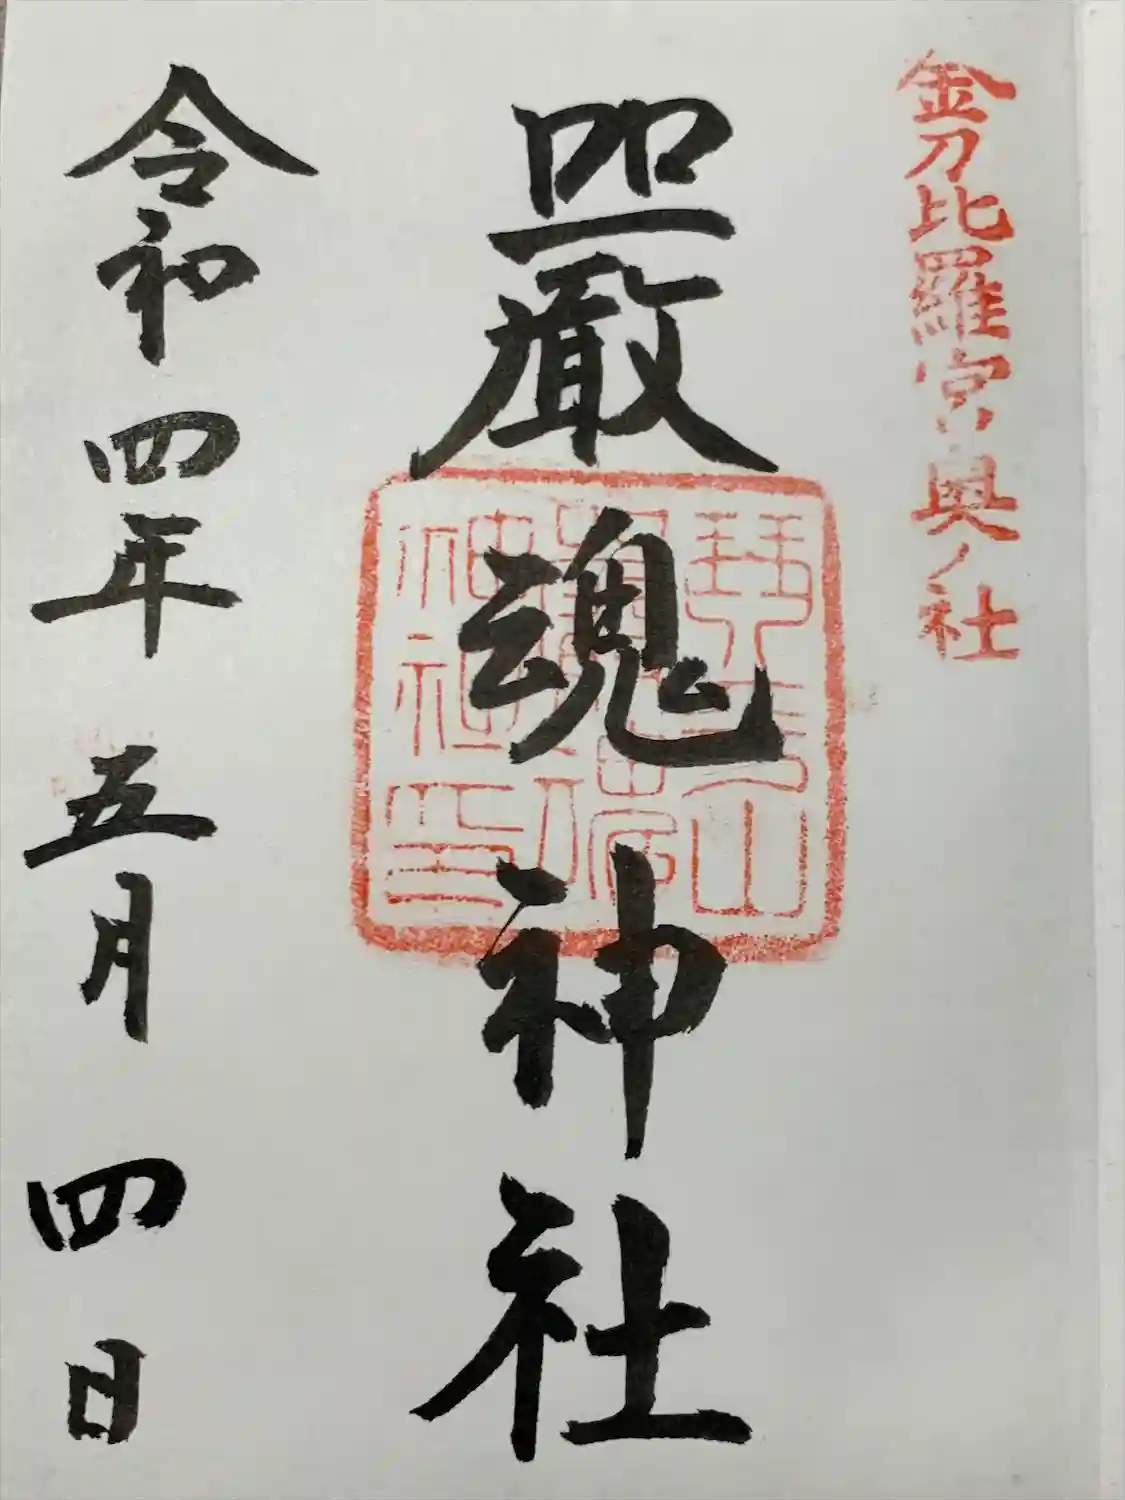 金刀比羅宮奥ノ社
嚴魂神社
令和四年五月四日